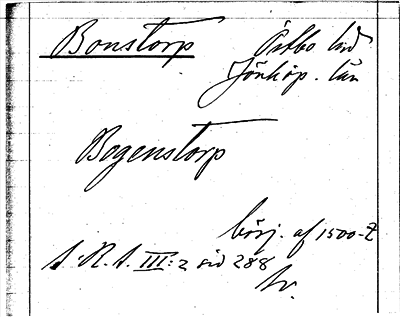 Bonstorp Östbo hd
Jönköp. län
Bogenstorp
börj. af 1500-t
S.R.A. III:2 sid 288